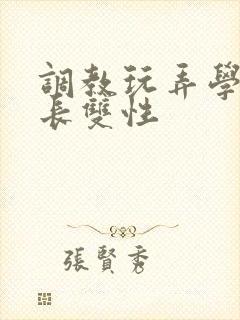 調教玩弄學
長雙性
張賢秀